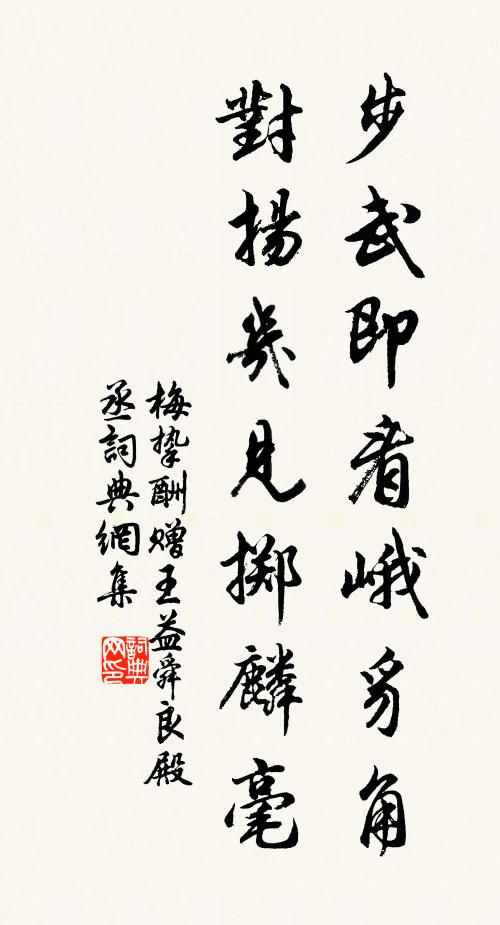 步武即看峨豸角
對揚幾見擲麟毫
梅摯酬赠王益舜良殿
丞詞典網集
詞典网印